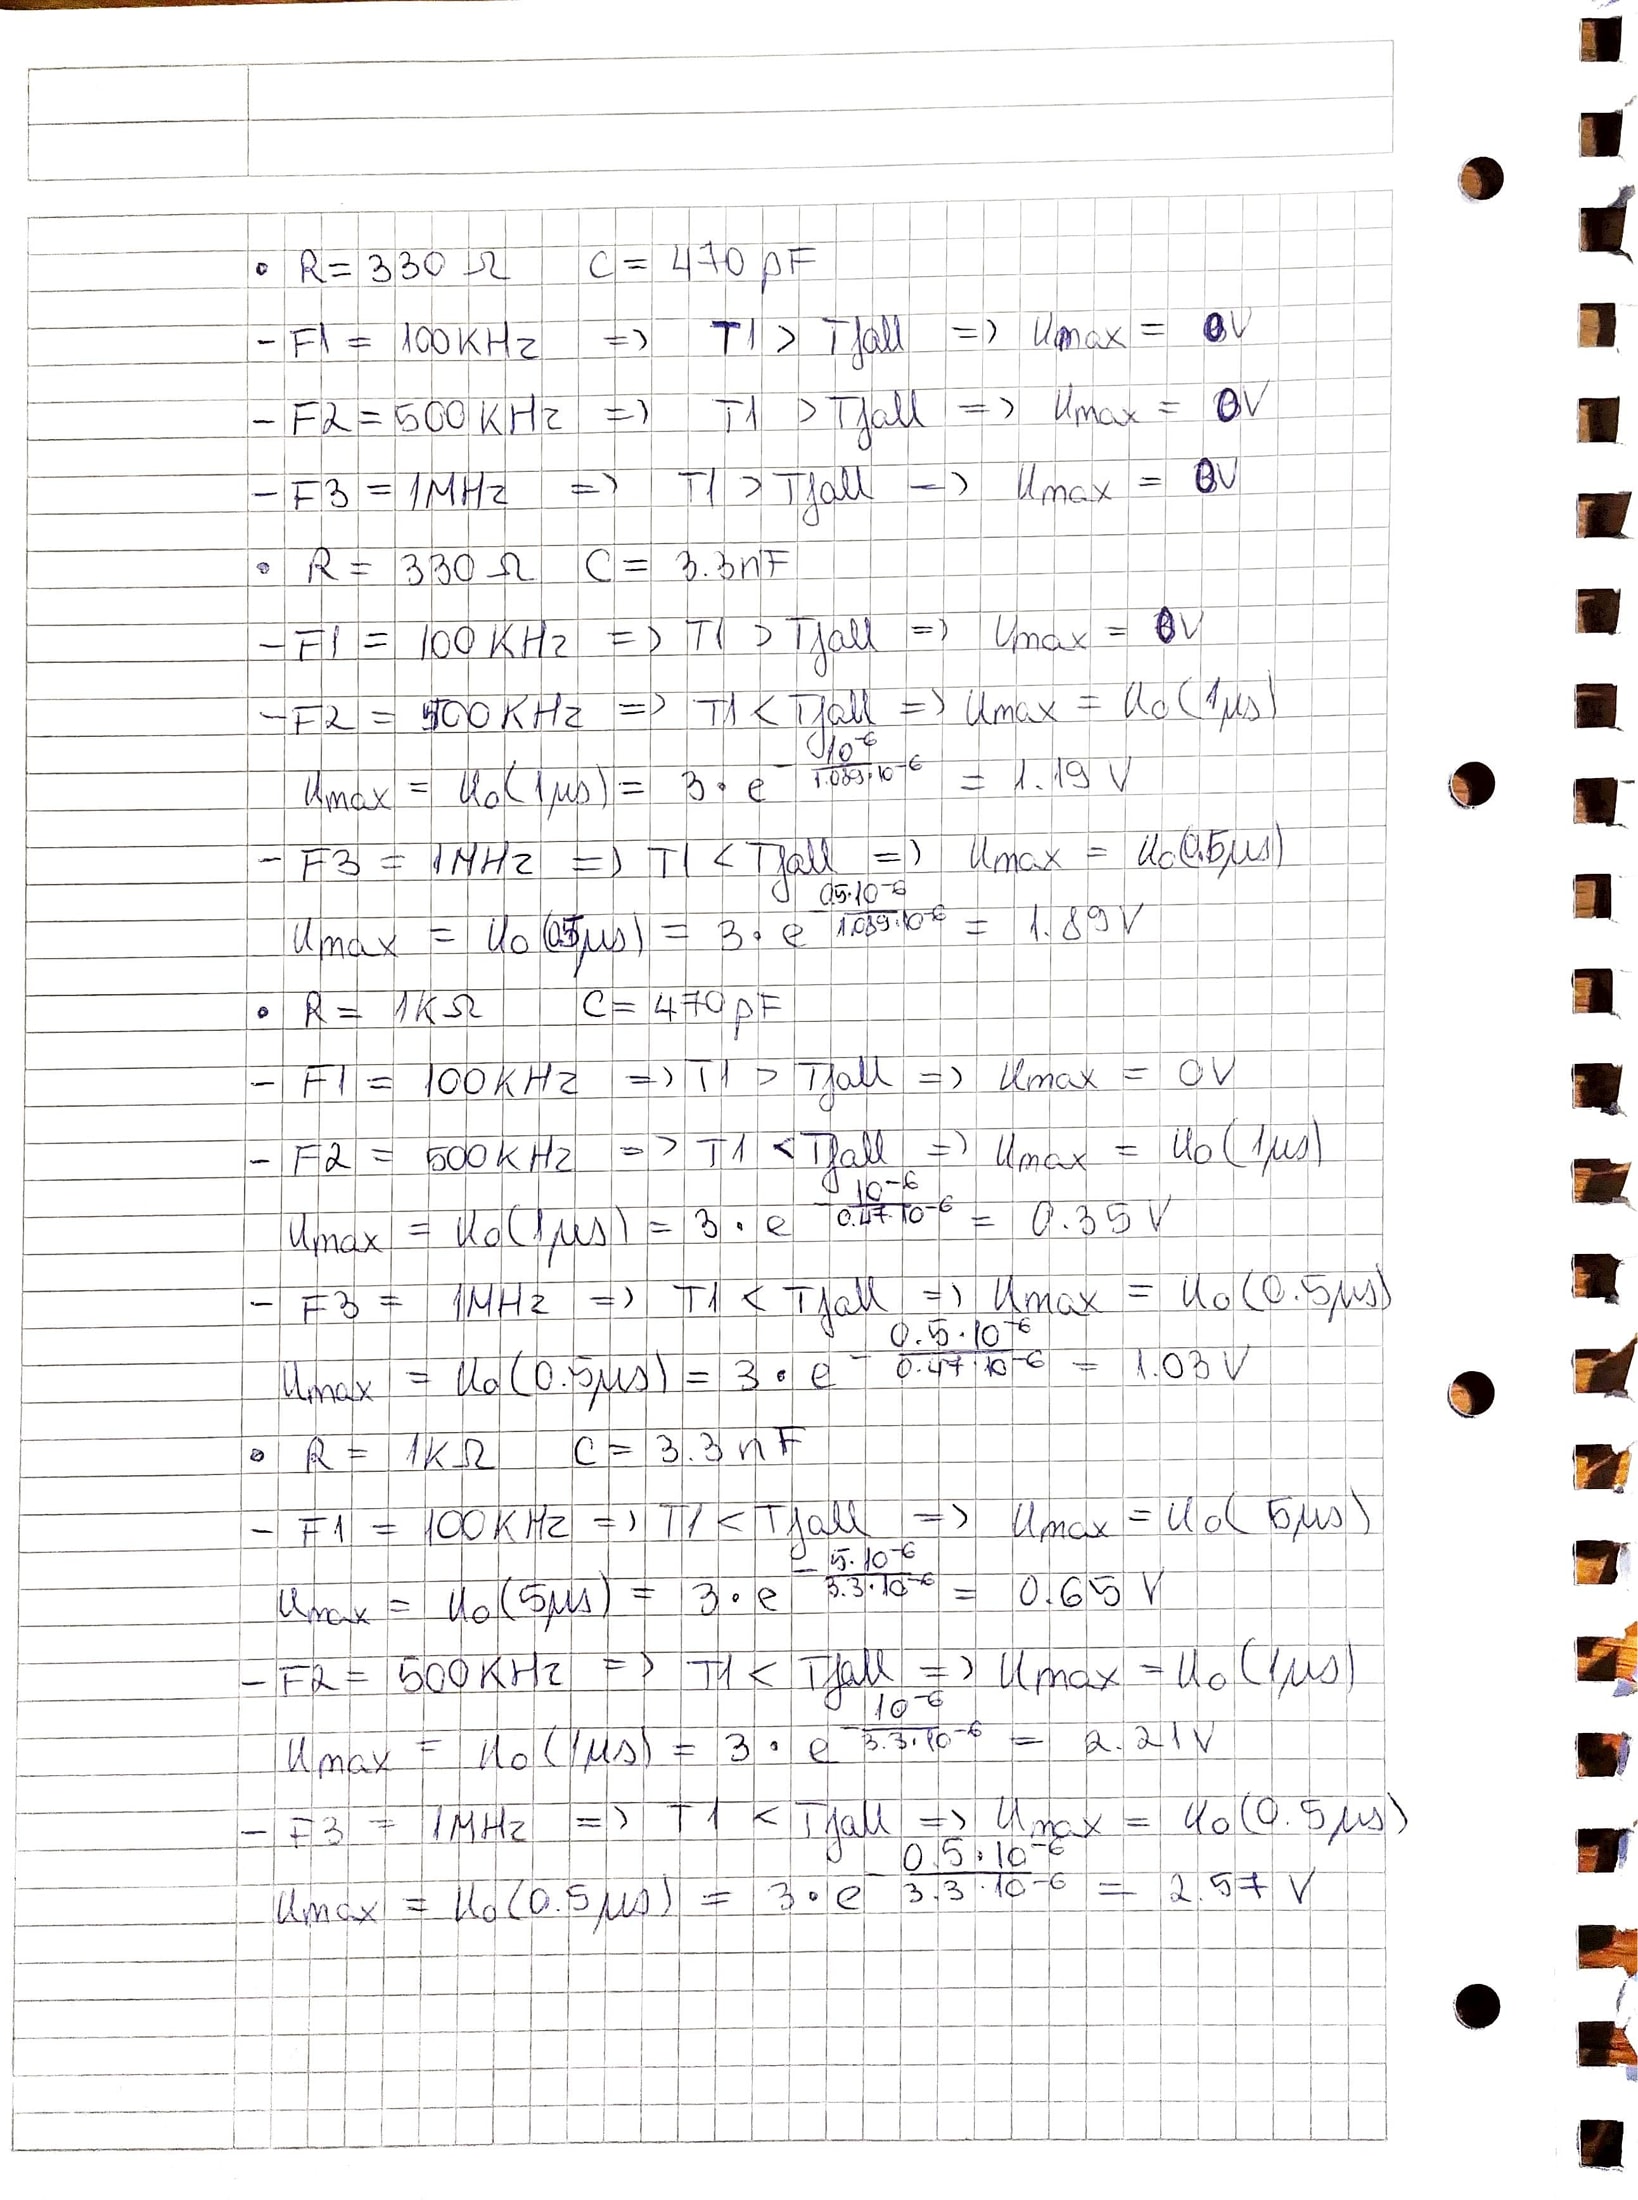 • R = 330 Ω C = 470 pF
- F1 = 100 KHz => T1 > Tfall => Umax = 0V
- F2 = 500 KHz => T1 > Tfall => Umax = 0V
- F3 = 1MHz => T1 > Tfall => Umax = 0V
• R = 330 Ω C = 3.3nF
- F1 = 100 KHz => T1 > Tfall => Umax = 0V
- F2 = 500 KHz => T1 < Tfall => Umax = U0(1µs)
Umax = U0(1µs) = 3 · e^(-10^-6 / 1.089·10^-6) = 1.19 V
- F3 = 1MHz => T1 < Tfall => Umax = U0(0.5µs)
Umax = U0(0.5µs) = 3 · e^(-0.5·10^-6 / 1.089·10^-6) = 1.89 V
• R = 1KΩ C = 470pF
- F1 = 100KHz => T1 > Tfall => Umax = 0V
- F2 = 500KHz => T1 < Tfall => Umax = U0(1µs)
Umax = U0(1µs) = 3 · e^(-10^-6 / 0.47·10^-6) = 0.35 V
- F3 = 1MHz => T1 < Tfall => Umax = U0(0.5µs)
Umax = U0(0.5µs) = 3 · e^(-0.5·10^-6 / 0.47·10^-6) = 1.03 V
• R = 1KΩ C = 3.3 nF
- F1 = 100KHz => T1 < Tfall => Umax = U0(5µs)
Umax = U0(5µs) = 3 · e^(-5·10^-6 / 3.3·10^-6) = 0.65 V
- F2 = 500KHz => T1 < Tfall => Umax = U0(1µs)
Umax = U0(1µs) = 3 · e^(-10^-6 / 3.3·10^-6) = 2.21V
- F3 = 1MHz => T1 < Tfall => Umax = U0(0.5µs)
Umax = U0(0.5µs) = 3 · e^(-0.5·10^-6 / 3.3·10^-6) = 2.57 V